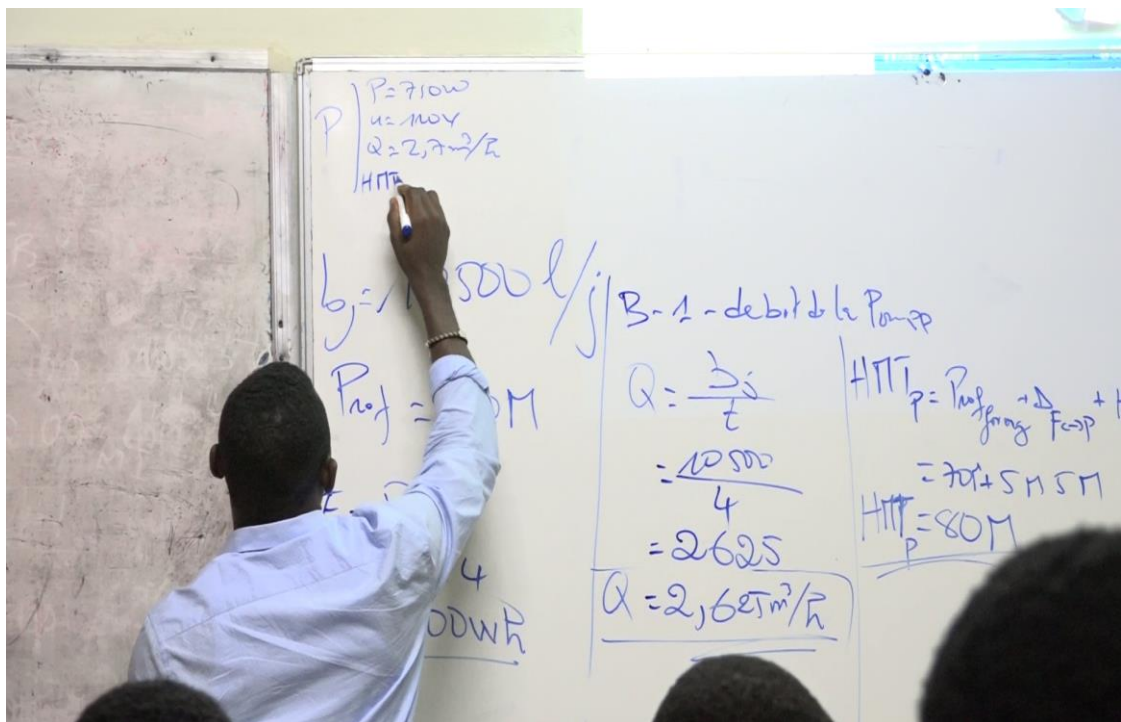 P
P=750W
u=110V
Q=2,7m³/h
HMT
bj= 500 l/j
Prof = M
4
00Wh
B-1-debit de la Pompe
Q= bj/t
= 10500/4
=2625
Q=2,625m³/h
HMTp= Prof forage + D F↔p + H
=70+5M 5M
HMTp=80M